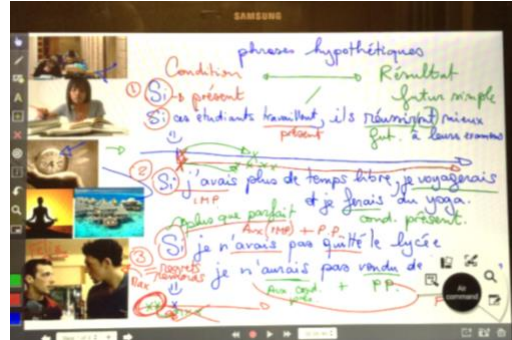 SAMSUNG
phrases hypothétiques
Condition Résultat
① Si → présent futur simple
Si ces étudiants travaillent, ils réussiront mieux
présent fut. à leurs examens
② Si j'avais plus de temps libre, je voyagerais
IMP et je ferais du yoga.
cond. présent.
plus que parfait
Aux (IMP) + P.P.
③ Si je n'avais pas quitté le lycée
= regrets
remords je n'aurais pas vendu de
Aux cond. + PP.
Air
command